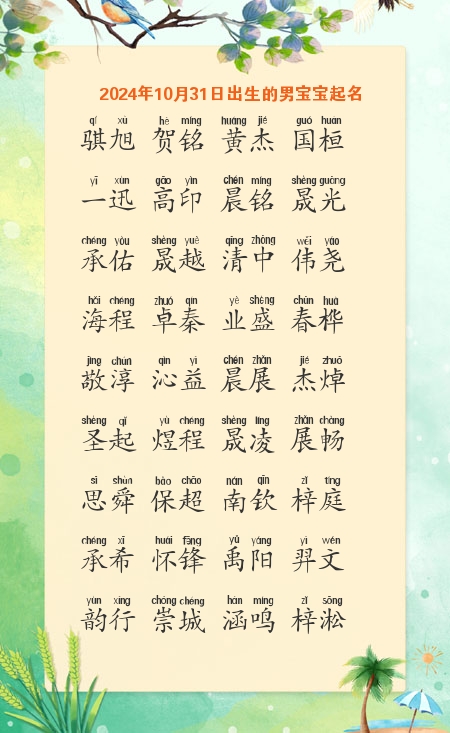 2024年10月31日出生的男宝宝起名
qí xù hè míng huáng jié guó huán
骐旭 贺铭 黄杰 国桓
yī xùn gāo yìn chén míng shèng guāng
一迅 高印 晨铭 晟光
chéng yòu shèng yuè qīng zhōng wěi yáo
承佑 晟越 清中 伟尧
hǎi chéng zhuó qín yè shèng chūn huà
海程 卓秦 业盛 春桦
jìng chún qìn yì chén zhǎn jié zhuō
敬淳 沁益 晨展 杰焯
shèng qǐ yù chéng shèng líng zhǎn chàng
圣起 煜程 晟凌 展畅
sī shùn bǎo chāo nán qīn zǐ tíng
思舜 保超 南钦 梓庭
chéng xī huái fēng yǔ yáng yì wén
承希 怀锋 禹阳 羿文
yùn xíng chóng chéng hán míng zǐ sōng
韵行 崇城 涵鸣 梓淞